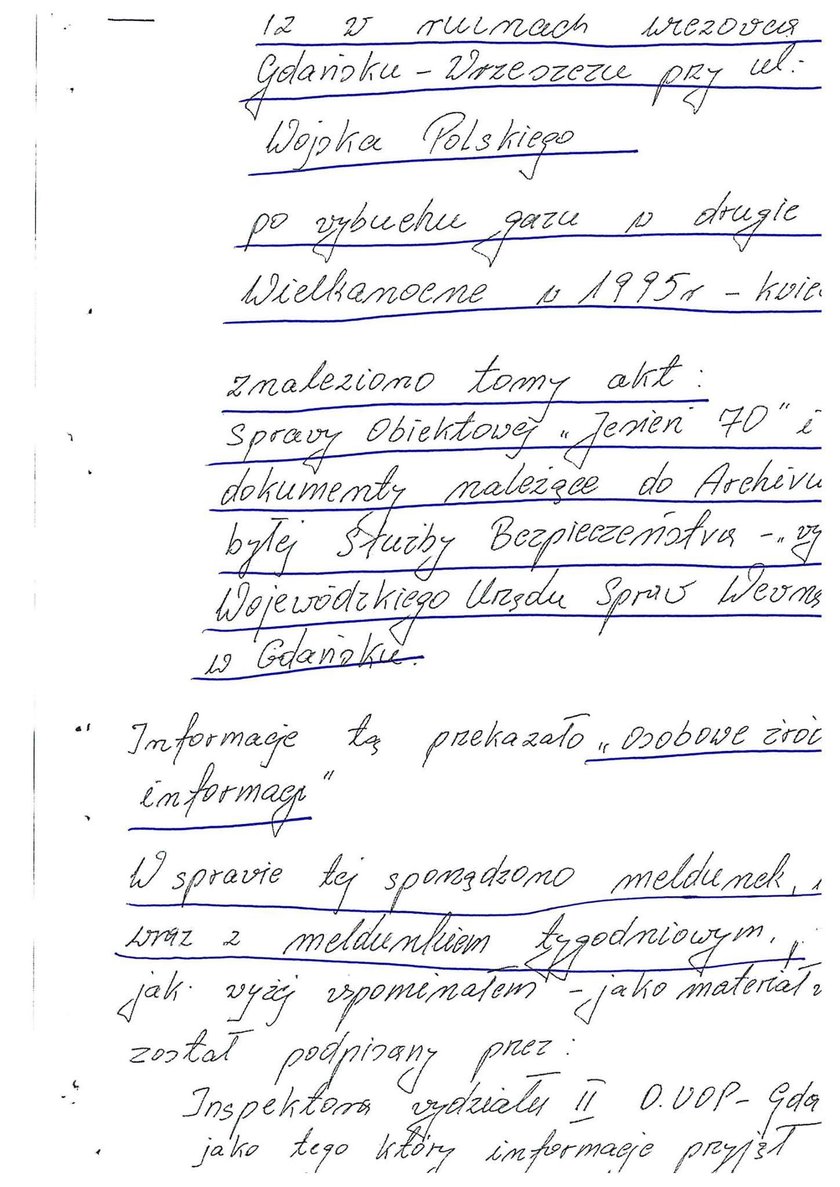 iż w ruinach wieżowca
Gdańsku - Wrzeszczu przy ul.
Wojska Polskiego
po wybuchu gazu w drugie
Wielkanocne w 1995r - kwie
znaleziono tomy akt :
Sprawy Obiektowej „Jesień 70" i
dokumenty należące do Archiwu
byłej Służby Bezpieczeństwa - „wy
Wojewódzkiego Urzędu Spraw Wewnę
w Gdańsku.
Informacje tą przekazało „osobowe źród
informacji"
W sprawie tej sporządzono meldunek,
wraz z meldunkiem tygodniowym,
jak wyżej wspominałem - jako materiał
został podpisany przez :
Inspektora wydziału II D.UOP - Gda
jako tego który informacje przyjął